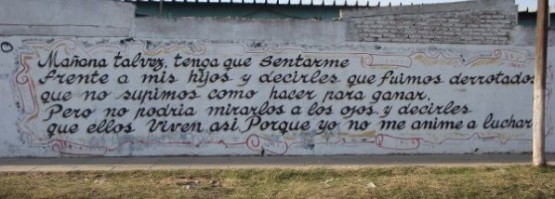 Mañana talvez, tenga que sentarme
frente a mis hijos y decirles que fuimos derrotados
que no supimos como hacer para ganar.
Pero no podria mirarlos a los ojos y decirles
que ellos viven asi Porque yo no me anime a luchar